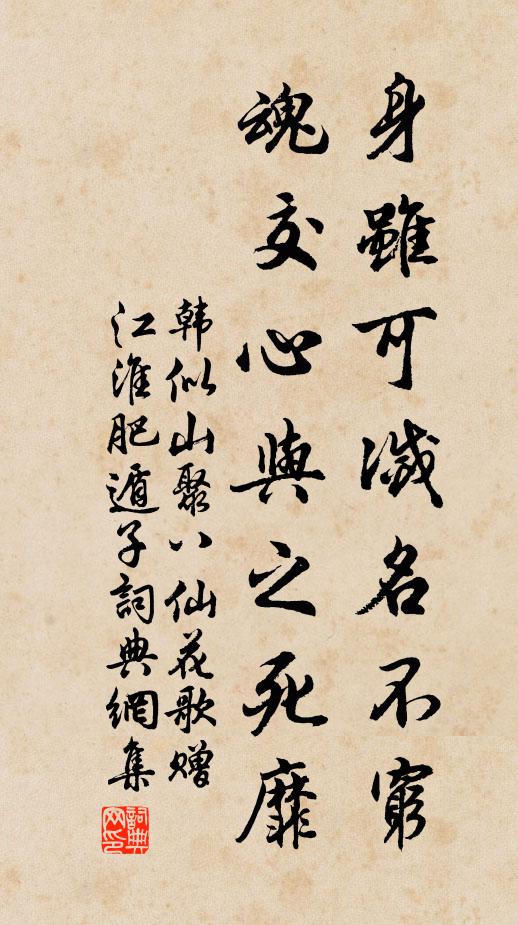 身雖可滅名不窮
魂交心與之死靡
韩似山聚八仙花歌赠
江淮肥遁子詞典網集
詞典网印